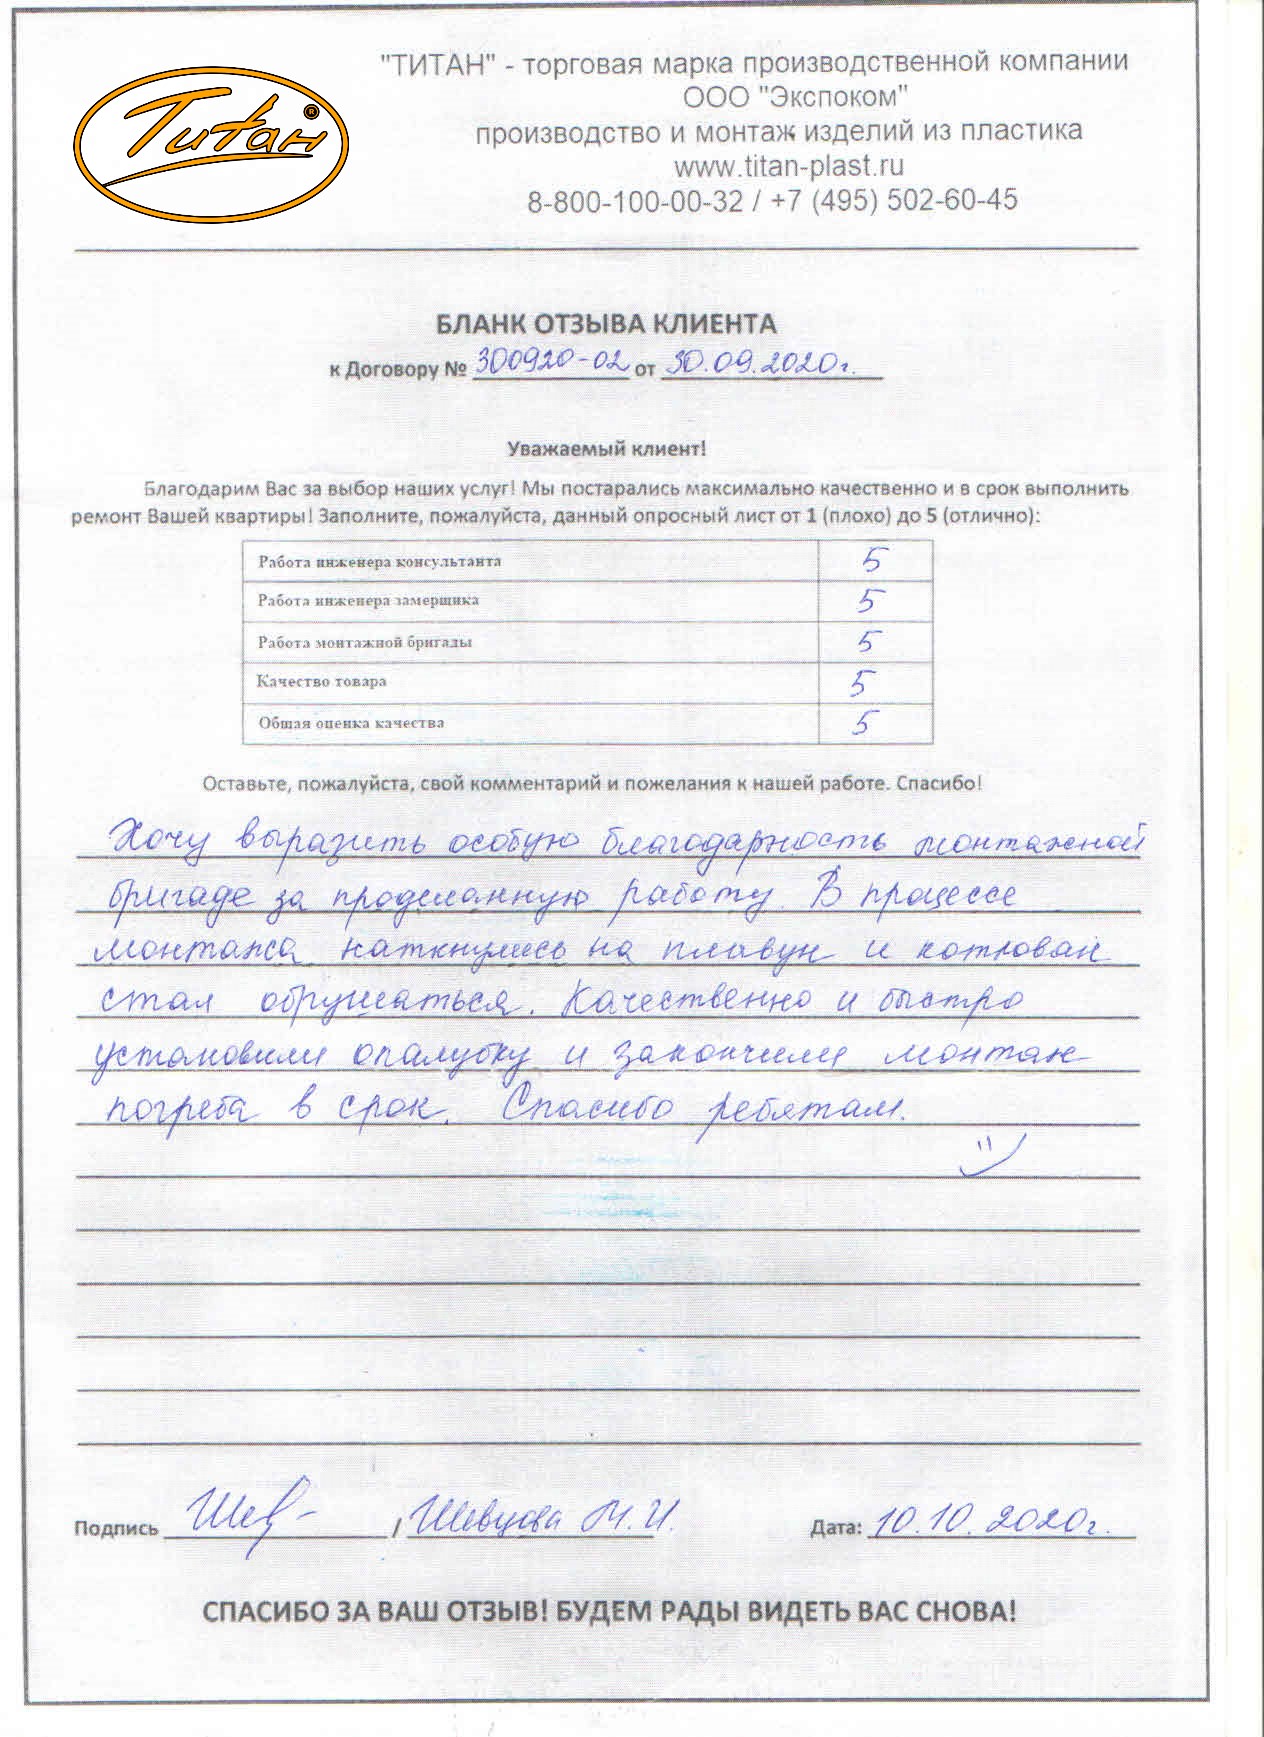 Титан ®
"ТИТАН" - торговая марка производственной компании
ООО "Экспоком"
производство и монтаж изделий из пластика
www.titan-plast.ru
8-800-100-00-32 / +7 (495) 502-60-45
БЛАНК ОТЗЫВА КЛИЕНТА
к Договору № 300920-02 от 30.09.2020г.
Уважаемый клиент!
Благодарим Вас за выбор наших услуг! Мы постарались максимально качественно и в срок выполнить
ремонт Вашей квартиры! Заполните, пожалуйста, данный опросный лист от 1 (плохо) до 5 (отлично):
Работа инженера консультанта 5
Работа инженера замерщика 5
Работа монтажной бригады 5
Качество товара 5
Общая оценка качества 5
Оставьте, пожалуйста, свой комментарий и пожелания к нашей работе. Спасибо!
Хочу выразить особую благодарность монтажной
бригаде за проделанную работу. В процессе
монтажа наткнулись на плавун и котлован
стал обрушаться. Качественно и быстро
установили опалубку и закончили монтаж
погреба в срок. Спасибо ребятам.
Подпись Шев- / Шевцова М.И. Дата: 10.10.2020г.
СПАСИБО ЗА ВАШ ОТЗЫВ! БУДЕМ РАДЫ ВИДЕТЬ ВАС СНОВА!